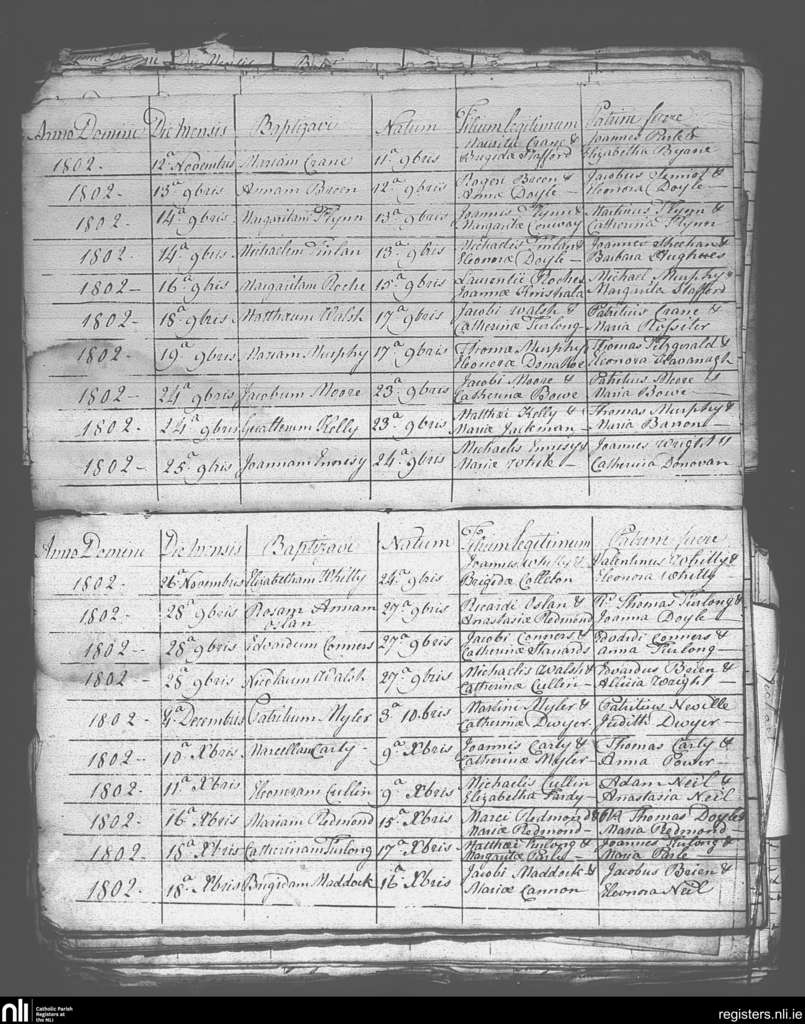 Anno Domini Die Mensis Baptizavi Natum Filium legitimum Patrini fuere
1802. 12a Novembris Mariam Crane 11a 9bris Mauritii Crane & Joannes Parle &
Brigida Stafford Elizabetha Byane
1802 - 13a 9bris Annam Breen 12a 9bris Rogeri Breen & Jacobus Sinnot &
Anna Doyle - Eleonora Doyle -
1802 - 14a 9bris Margaritam Flynn 13a 9bris Joannis Flynn & Martinus Flynn &
Margaritæ Conway Catherina Flynn
1802 - 14a 9bris Michaelem Finlan 13a 9bris Michaelis Finlan & Joannes Sheehan &
Eleonoræ Doyle - Barbara Hughes
1802 - 16a 9bris Margaritam Roche 15a 9bris Laurentii Roche & Michael Murphy &
Joannæ Margarita Stafford
1802 - 18a 9bris Matthæum Walsh 17a 9bris Jacobi Walsh & Patritius Crane &
Catherinæ Furlong - Maria Rossiter
1802 - 19a 9bris Mariam Murphy 17a 9bris Thomæ Murphy Thomas Fitzgerald &
Eleonoræ Donahoe Eleonora Kavanagh
1802 - 24a 9bris Jacobum Moore 23a 9bris Jacobi Moore & Patritius Moore &
Catherinæ Bowe Maria Bowe -
1802. 24a 9bris Gualterum Kelly 23a 9bris Matthæi Kelly & Thomas Murphy &
Mariæ - Maria Barron -
1802 - 25a 9bris Joannam Ennisy 24a 9bris Michaelis Ennisy & Joannes Wright &
Mariæ White - Catherina Donovan
Anno Domini Die Mensis Baptizavi Natum Filium legitimum Patrini fuere
1802 - 26a Novembris Elizabetham Whitty 24a 9bris Joannis Whitty & Valentinus Whitty &
Brigidæ Colleton Eleonora Whitty
1802. 28a 9bris Rosam Annam 27a 9bris Ricardi Oslan & Rs. Thomas Furlong &
Oslan Anastasiæ Redmond Joanna Doyle -
1802 - 28a 9bris Edvardum Conners 27a 9bris Jacobi Conners & Edvardi Conners &
Catherinæ Anna Furlong -
1802 - 28a 9bris Nicolaum Walsh 27a 9bris Michaelis Walsh & Edvardus Brien &
Catherinæ Cullin - Allicia Wright -
1802 - 4a Decembris Patritium Myler 3a 10bris Martini Myler & Patritius Neville
Catherinæ Dwyer - Judith Dwyer -
1802 - 10a Xbris Marcellam Carty - 9a Xbris Joannis Carty & Thomas Carty &
Catherinæ Myler - Anna Power -
1802 - 11a Xbris Eleonoram Cullin 9a Xbris Michaelis Cullin Adam Neil &
Elizabetha Anastasia Neil
1802 - 16a Xbris Mariam Redmond 15a Xbris Marci Redmond & Thomas Doyle &
Mariæ Redmond - Maria Redmond
1802 - 18a Xbris Catherinam Furlong 17a Xbris Matthæi Furlong & Joannes Furlong &
Margaritæ Parle - Maria Parle -
1802 - 18a Xbris Brigidam Maddock 16a Xbris Jacobi Maddock & Jacobus Brien &
Mariæ Cannon Eleonora Neil
nli Catholic Parish
Registers at
the NLI
registers.nli.ie